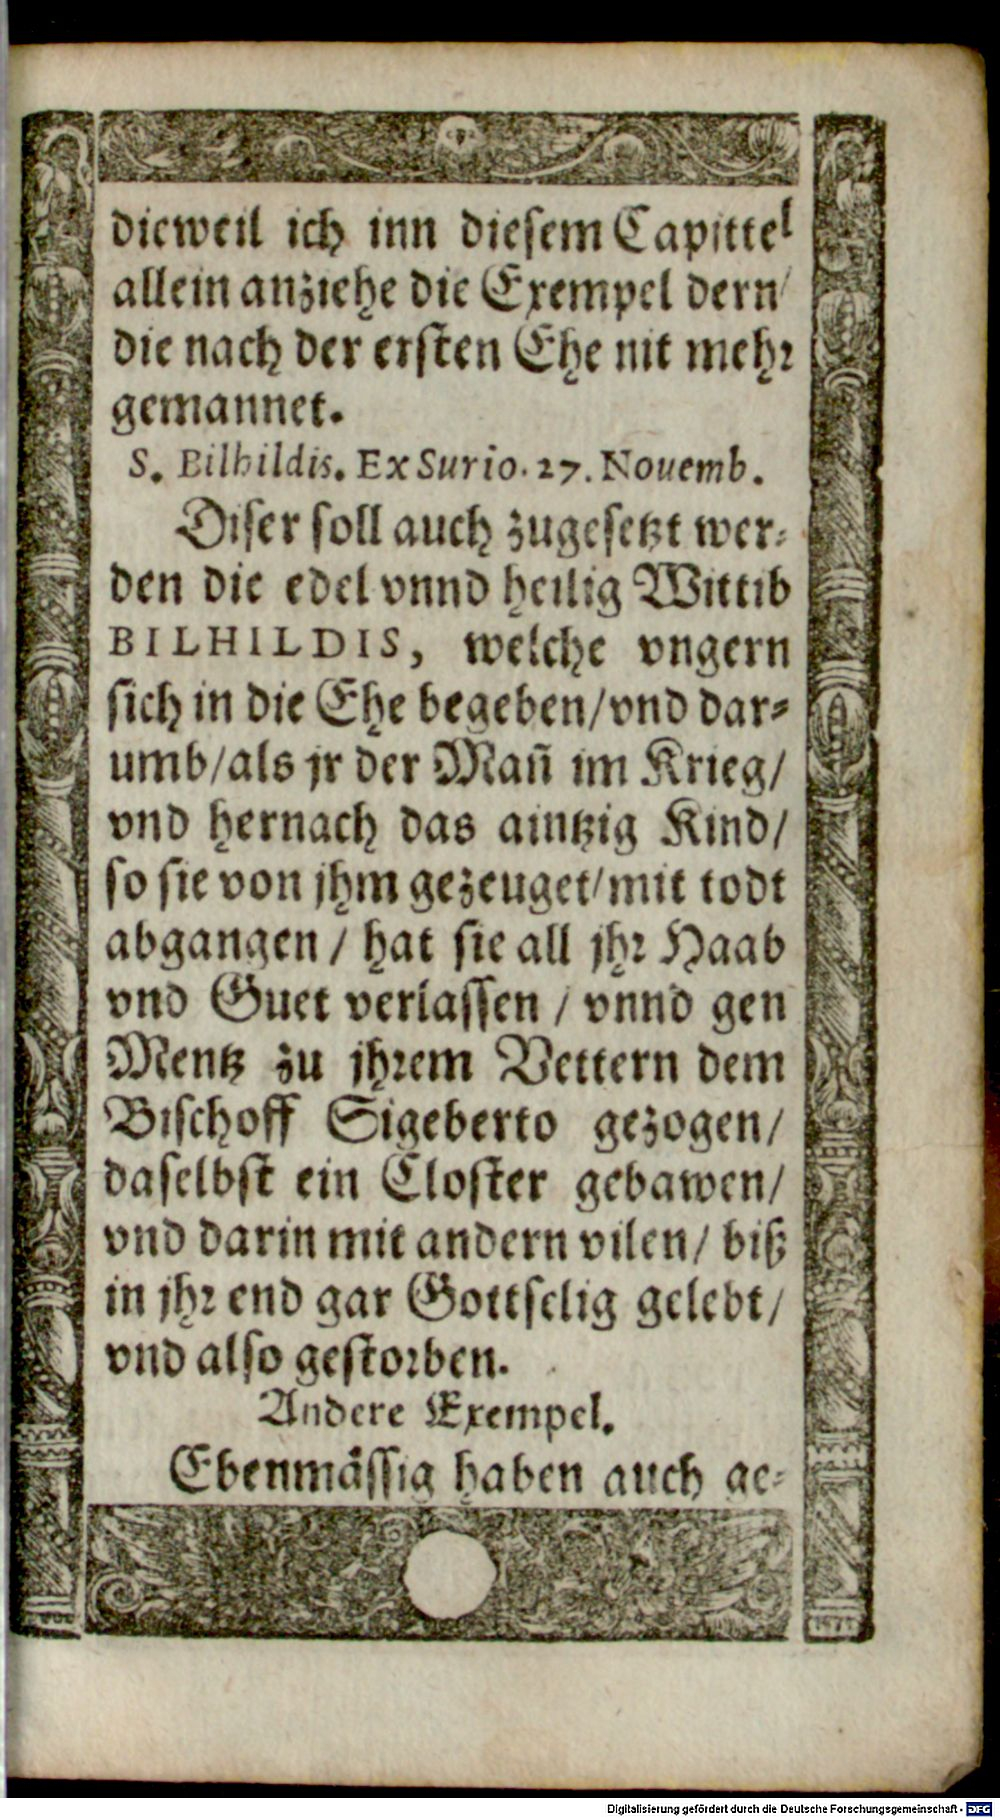 dieweil ich inn diesem Capittel
allein anziehe die Exempel dern/
die nach der ersten Ehe nit mehr
gemannet.
S. Bilhildis. Ex Surio. 27. Nouemb.
Diser soll auch zugesetzt wer-
den die edel vnnd heilig Wittib
BILHILDIS, welche vngern
sich in die Ehe begeben/vnd dar-
umb/als jr der Mañ im Krieg/
vnd hernach das aintzig Kind/
so sie von jhm gezeuget/mit todt
abgangen / hat sie all jhr Haab
vnd Guet verlassen / vnnd gen
Mentz zu jhrem Vettern dem
Bischoff Sigeberto gezogen/
daselbst ein Closter gebawen/
vnd darin mit andern vilen/ biß
in jhr end gar Gottselig gelebt/
vnd also gestorben.
Andere Exempel.
Ebenmässig haben auch ge-
Digitalisierung gefördert durch die Deutsche Forschungsgemeinschaft - DFG